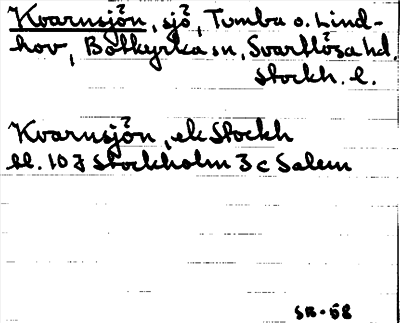 Kvarnsjön, sjö, Tumba o. Lind-
hov, Botkyrka sn, Svartlösa hd.
Stockh. l.
Kvarnsjön, ek Stockh
bl. 10 I Stockholm 3 c Salem
SR-68